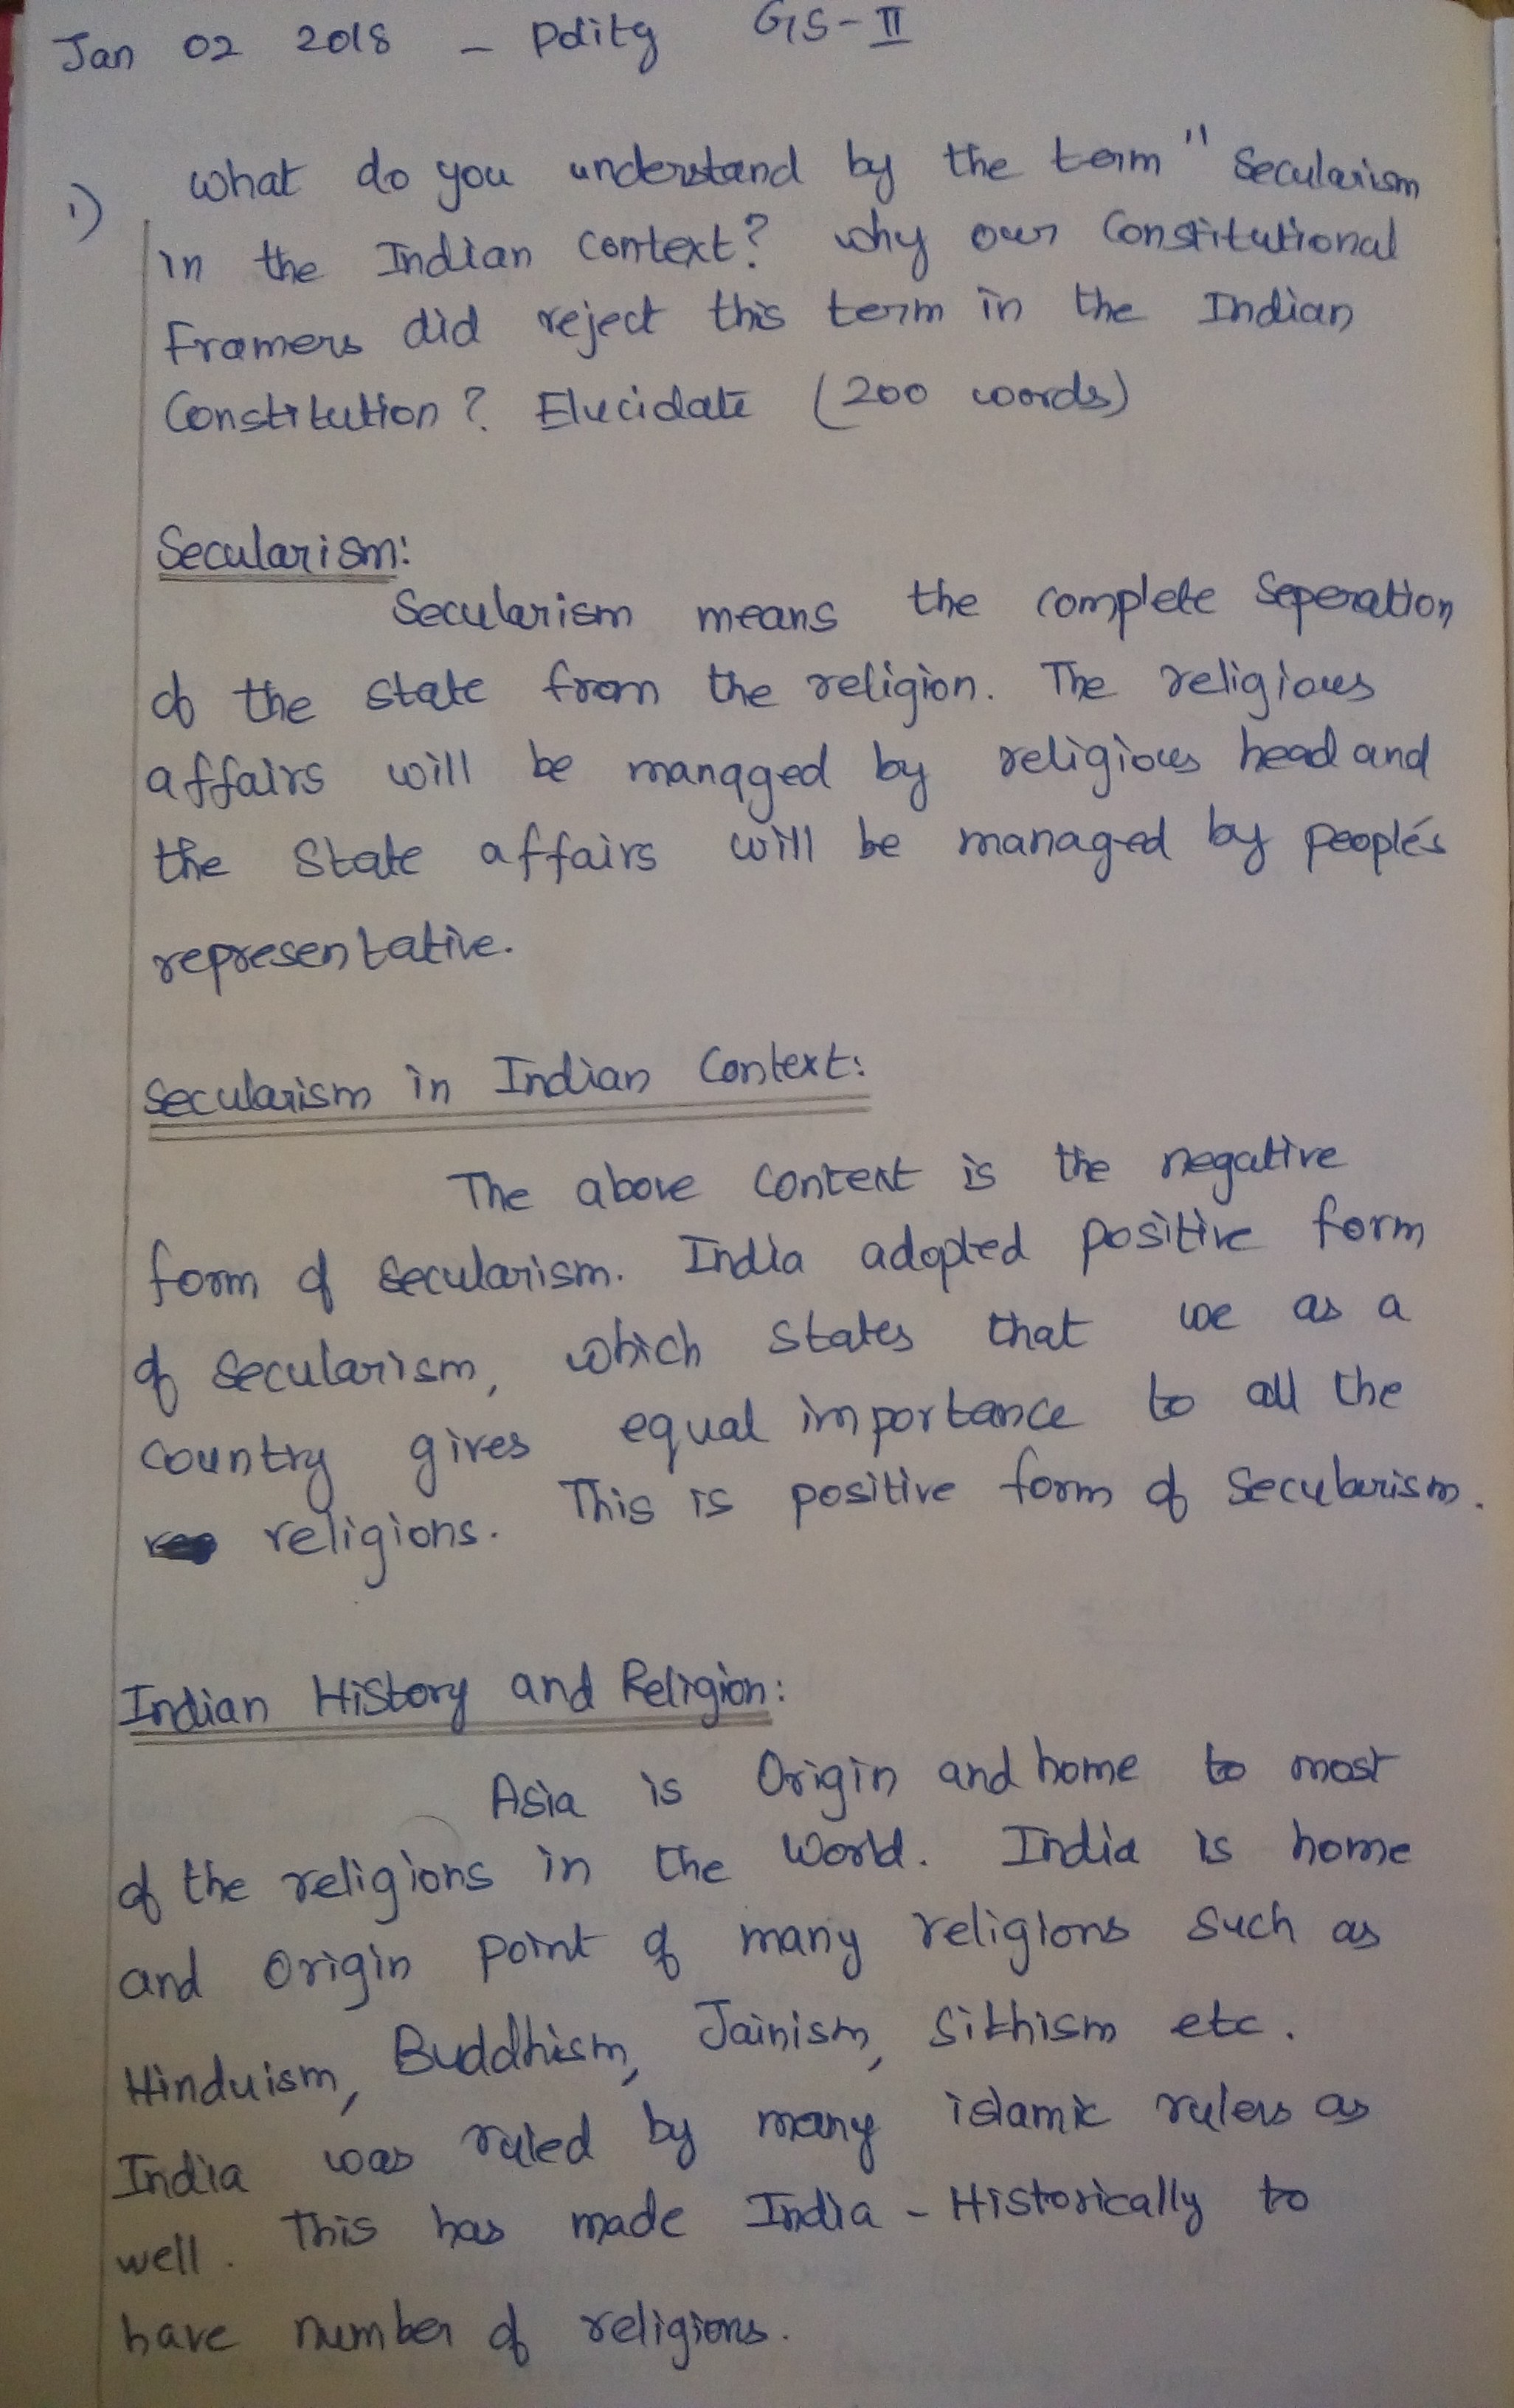 Jan 02 2018 - Polity GS-II
1) What do you understand by the term " Secularism
in the Indian Context? Why our Constitutional
Framers did reject this term in the Indian
Constitution? Elucidate (200 words)
Secularism:
Secularism means the complete Seperation
of the state from the religion. The religious
affairs will be managed by religious head and
the State affairs will be managed by people's
representative.
Secularism in Indian Context:
The above Context is the negative
form of secularism. India adopted positive form
of secularism, which states that we as a
country gives equal importance to all the
religions. This is positive form of Secularism.
Indian History and Religion:
Asia is Origin and home to most
of the religions in the World. India is home
and origin point of many religions such as
Hinduism, Buddhism, Jainism, Sikhism etc.
India was ruled by many islamic rulers as
well. This has made India - Historically to
have number of religions.